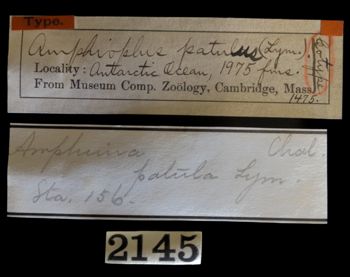 Type.
Amphioplus patulus (Lym.)
Cotype
Locality: Antarctic Ocean, 1975 fms.
From Museum Comp. Zoölogy, Cambridge, Mass.
1475.
Amphiura Chal.
patula Lym.
Sta. 156.
2145